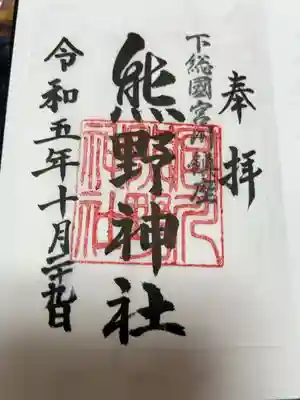 奉拝
下総國宮内鎮座
熊野神社
令和五年十月二十九日